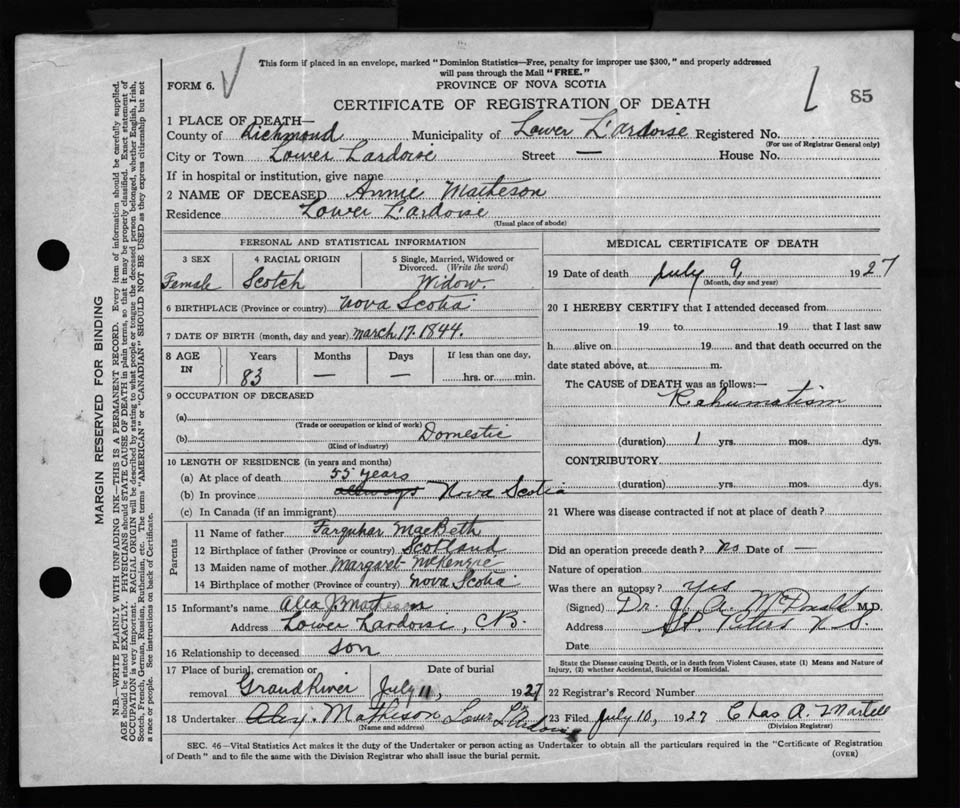 This form if placed in an envelope, marked "Dominion Statistics—Free, penalty for improper use $300," and properly addressed
will pass through the Mail "FREE."
FORM 6.
PROVINCE OF NOVA SCOTIA
CERTIFICATE OF REGISTRATION OF DEATH
85
1 PLACE OF DEATH—
County of Richmond Municipality of Lower L'ardoise Registered No.
(For use of Registrar General only)
City or Town Lower Lardoise Street — House No.
If in hospital or institution, give name
2 NAME OF DECEASED Annie Matheson
Residence Lower L'ardoise
(Usual place of abode)
PERSONAL AND STATISTICAL INFORMATION
3 SEX 4 RACIAL ORIGIN 5 Single, Married, Widowed or
Divorced. (Write the word)
Female Scotch Widow.
6 BIRTHPLACE (Province or country) Nova Scotia
7 DATE OF BIRTH (month, day and year) March 17. 1844.
8 AGE IN Years Months Days If less than one day,
83 — — hrs. or min.
9 OCCUPATION OF DECEASED
(a)
(Trade or occupation or kind of work)
(b) Domestic
(Kind of industry)
10 LENGTH OF RESIDENCE (in years and months)
(a) At place of death 55 years
(b) In province allways Nova Scotia
(c) In Canada (if an immigrant)
Parents
11 Name of father Farquhar MacBeth
12 Birthplace of father (Province or country) Scotland
13 Maiden name of mother Margaret McKenzie
14 Birthplace of mother (Province or country) Nova Scotia
15 Informant's name Alex J. Matheson
Address Lower Lardoise, C.B.
16 Relationship to deceased son
17 Place of burial, cremation or Date of burial
removal Grand River July 11, 1927
18 Undertaker Alex. Matheson Lowr L'Ardoise
(Name and address)
MEDICAL CERTIFICATE OF DEATH
19 Date of death July 9, 1927
(Month, day and year)
20 I HEREBY CERTIFY that I attended deceased from
19 to 19 that I last saw
h alive on 19 and that death occurred on the
date stated above, at m.
The CAUSE of DEATH was as follows:—
Rehumatism
(duration) 1 yrs. mos. dys.
CONTRIBUTORY
(duration) yrs. mos. dys.
21 Where was disease contracted if not at place of death?
Did an operation precede death? No Date of —
Nature of operation
Was there an autopsy? Yes
(Signed) Dr. J. A. McDonald M.D.
Address St. Peters N.S.
Date
State the Disease causing Death, or in death from Violent Causes, state (1) Means and Nature of
Injury, (2) whether Accidental, Suicidal or Homicidal.
22 Registrar's Record Number
23 Filed July 10, 1927 Chas A. Martell
(Division Registrar)
SEC. 46—Vital Statistics Act makes it the duty of the Undertaker or person acting as Undertaker to obtain all the particulars required in the "Certificate of Registration
of Death" and to file the same with the Division Registrar who shall issue the burial permit.
(OVER)
MARGIN RESERVED FOR BINDING
N.B.—WRITE PLAINLY WITH UNFADING INK—THIS IS A PERMANENT RECORD. Every item of information should be carefully supplied.
AGE should be stated EXACTLY. PHYSICIANS should STATE CAUSE OF DEATH in plain terms, so that it may be properly classified. Exact statement of
OCCUPATION is very important. RACIAL ORIGIN will be described by stating to what people or tongue the deceased person belonged, whether English, Irish,
Scotch, French, German, Russian, Ruthenian, etc. The terms "AMERICAN" or "CANADIAN" SHOULD NOT BE USED as they express citizenship but not
a race or people. See instructions on back of Certificate.